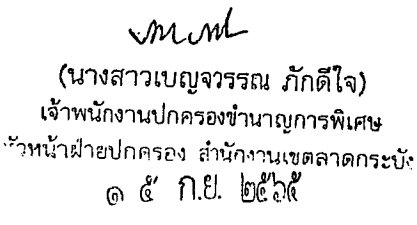 (นางสาวเบญจวรรณ ภักดีใจ)
เจ้าพนักงานปกครองชำนาญการพิเศษ
หัวหน้าฝ่ายปกครอง สำนักงานเขตลาดกระบัง
๑ ๕ ก.ย. ๒๕๖๕